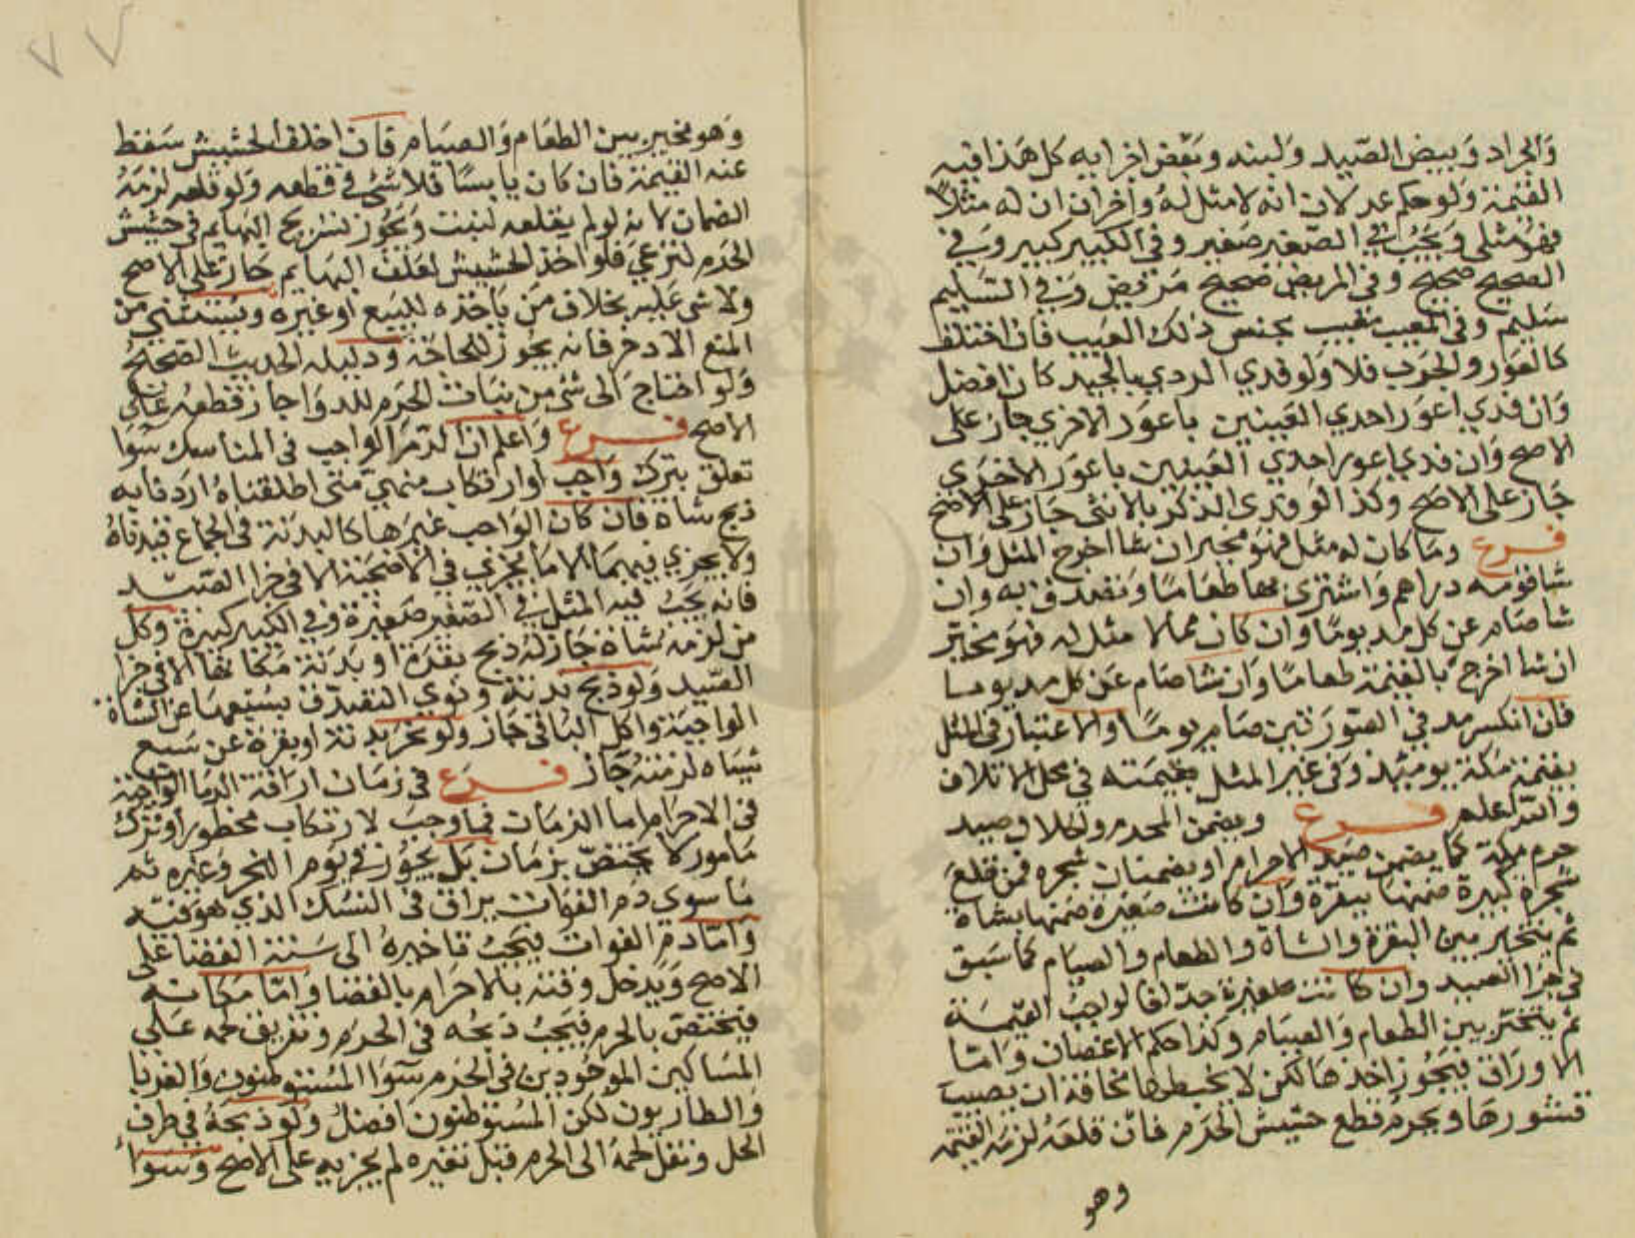 والجراد وبيض الصيد ولبنه وبعض اجزايه كل هذا فيه
القيمة ولو حكم عدلان انه لا مثل له واخران ان له مثلا
فهو مثلي ويجب في الصغير صغير وفي الكبير كبير وفي
الصحيح صحيح وفي المريض صحيح مريض وفي السليم
سليم وفي المعيب معيب بجنس ذلك العيب فان اختلف
كالعور والجرب فلا ولو فدي الردي بالجيد كان افضل
وان فدي اعور احدي العينين باعور الاخري جاز على
الاصح وان فدي اعور احدي العينين باعور الاخري
جاز على الاصح وكذا لو فدى الذكر بالانثى جاز على الاصح
فرع وما كان له مثل فهو مخير ان شا اخرج المثل وان
شا قومه دراهم واشترى بها طعاما وتصدق به وان
شا صام عن كل مد يوما وان كان مما لا مثل له فهو مخير
ان شا اخرج بالقيمة طعاما وان شا صام عن كل مد يوما
فان انكسر مد في الصورتين صام يوما والاعتبار في المثل
بقيمة مكة يوميذ وفي غير المثل بقيمته في محل الاتلاف
والله اعلم فرع ويضمن المحرم والحلال صيد
حرم مكة كما يضمن صيد الاحرام ويضمنان شجره فمن قلع
شجرة كبيرة ضمنها ببقرة وان كانت صغيرة ضمنها بشاة
ثم يتخير بين البقرة والشاة والطعام والصيام كما سبق
في جزا الصيد وان كانت صغيرة جدا فالواجب القيمة
ثم يتخير بين الطعام والصيام وكذا حكم الاغصان واما
الاوراق فيجوز اخذها لكن لا يخبطها مخافة ان يصيب
قشورها ويحرم قطع حشيش الحرم فان قلعه لزمه القيمة
وهو
وهو مخير بين الطعام والصيام فان اخلف الحشيش سقط
عنه القيمة فان كان يابسا فلا شئ في قطعه ولو قلعه لزمه
الضمان لانه لو لم يقلعه لنبت ويجوز تسريح البهايم في حشيش
الحرم لترعي فلو اخذ الحشيش لعلف البهايم جاز على الاصح
ولا شئ عليه بخلاف من ياخذه للبيع او غيره ويستثني من
المنع الاذخر فانه يجوز للحاجة ودليله الحديث الصحيح
ولو احتاج الى شئ من نبات الحرم للدوا جاز قطعه على
الاصح فرع واعلم ان الدم الواجب في المناسك سوا
تعلق بترك واجب او ارتكاب منهي متى اطلقناه اردنا به
ذبح شاة فان كان الواجب غيرها كالبدنة في الجماع قيدناه
ولا يجزي فيهما الا ما يجزي في الاضحية الا في جزا الصيد
فانه يجب فيه المثل في الصغير صغيرة وفي الكبير كبيرة وكل
من لزمه شاة جاز له ذبح بقرة او بدنة مكانها الا في جزا
الصيد ولو ذبح بدنة ونوي التصدق بسبعها عن الشاة
الواجبة واكل الباقي جاز ولو نحر بدنة او بقرة عن سبع
شياه لزمته جاز فرع في زمان اراقة الدما الواجبة
في الاحرام اما الزمان فما وجب لارتكاب محظور او ترك
مامور لا يختص بزمان بل يجوز في يوم النحر وغيره ثم
ما سوي دم الفوات يراق في النسك الذي هو فيه
واما دم الفوات فيجب تاخيره الى سنة القضا على
الاصح ويدخل وقته بالاحرام بالقضا واما مكانه
فيختص بالحرم فيجب ذبحه في الحرم وتفريق لحمه على
المساكين الموجودين في الحرم سوا المستوطنون والغربا
والطاريون لكن المستوطنون افضل ولو ذبحه في طرف
الحل ونقل لحمه الى الحرم قبل تغيره لم يجزيه على الاصح وسوا